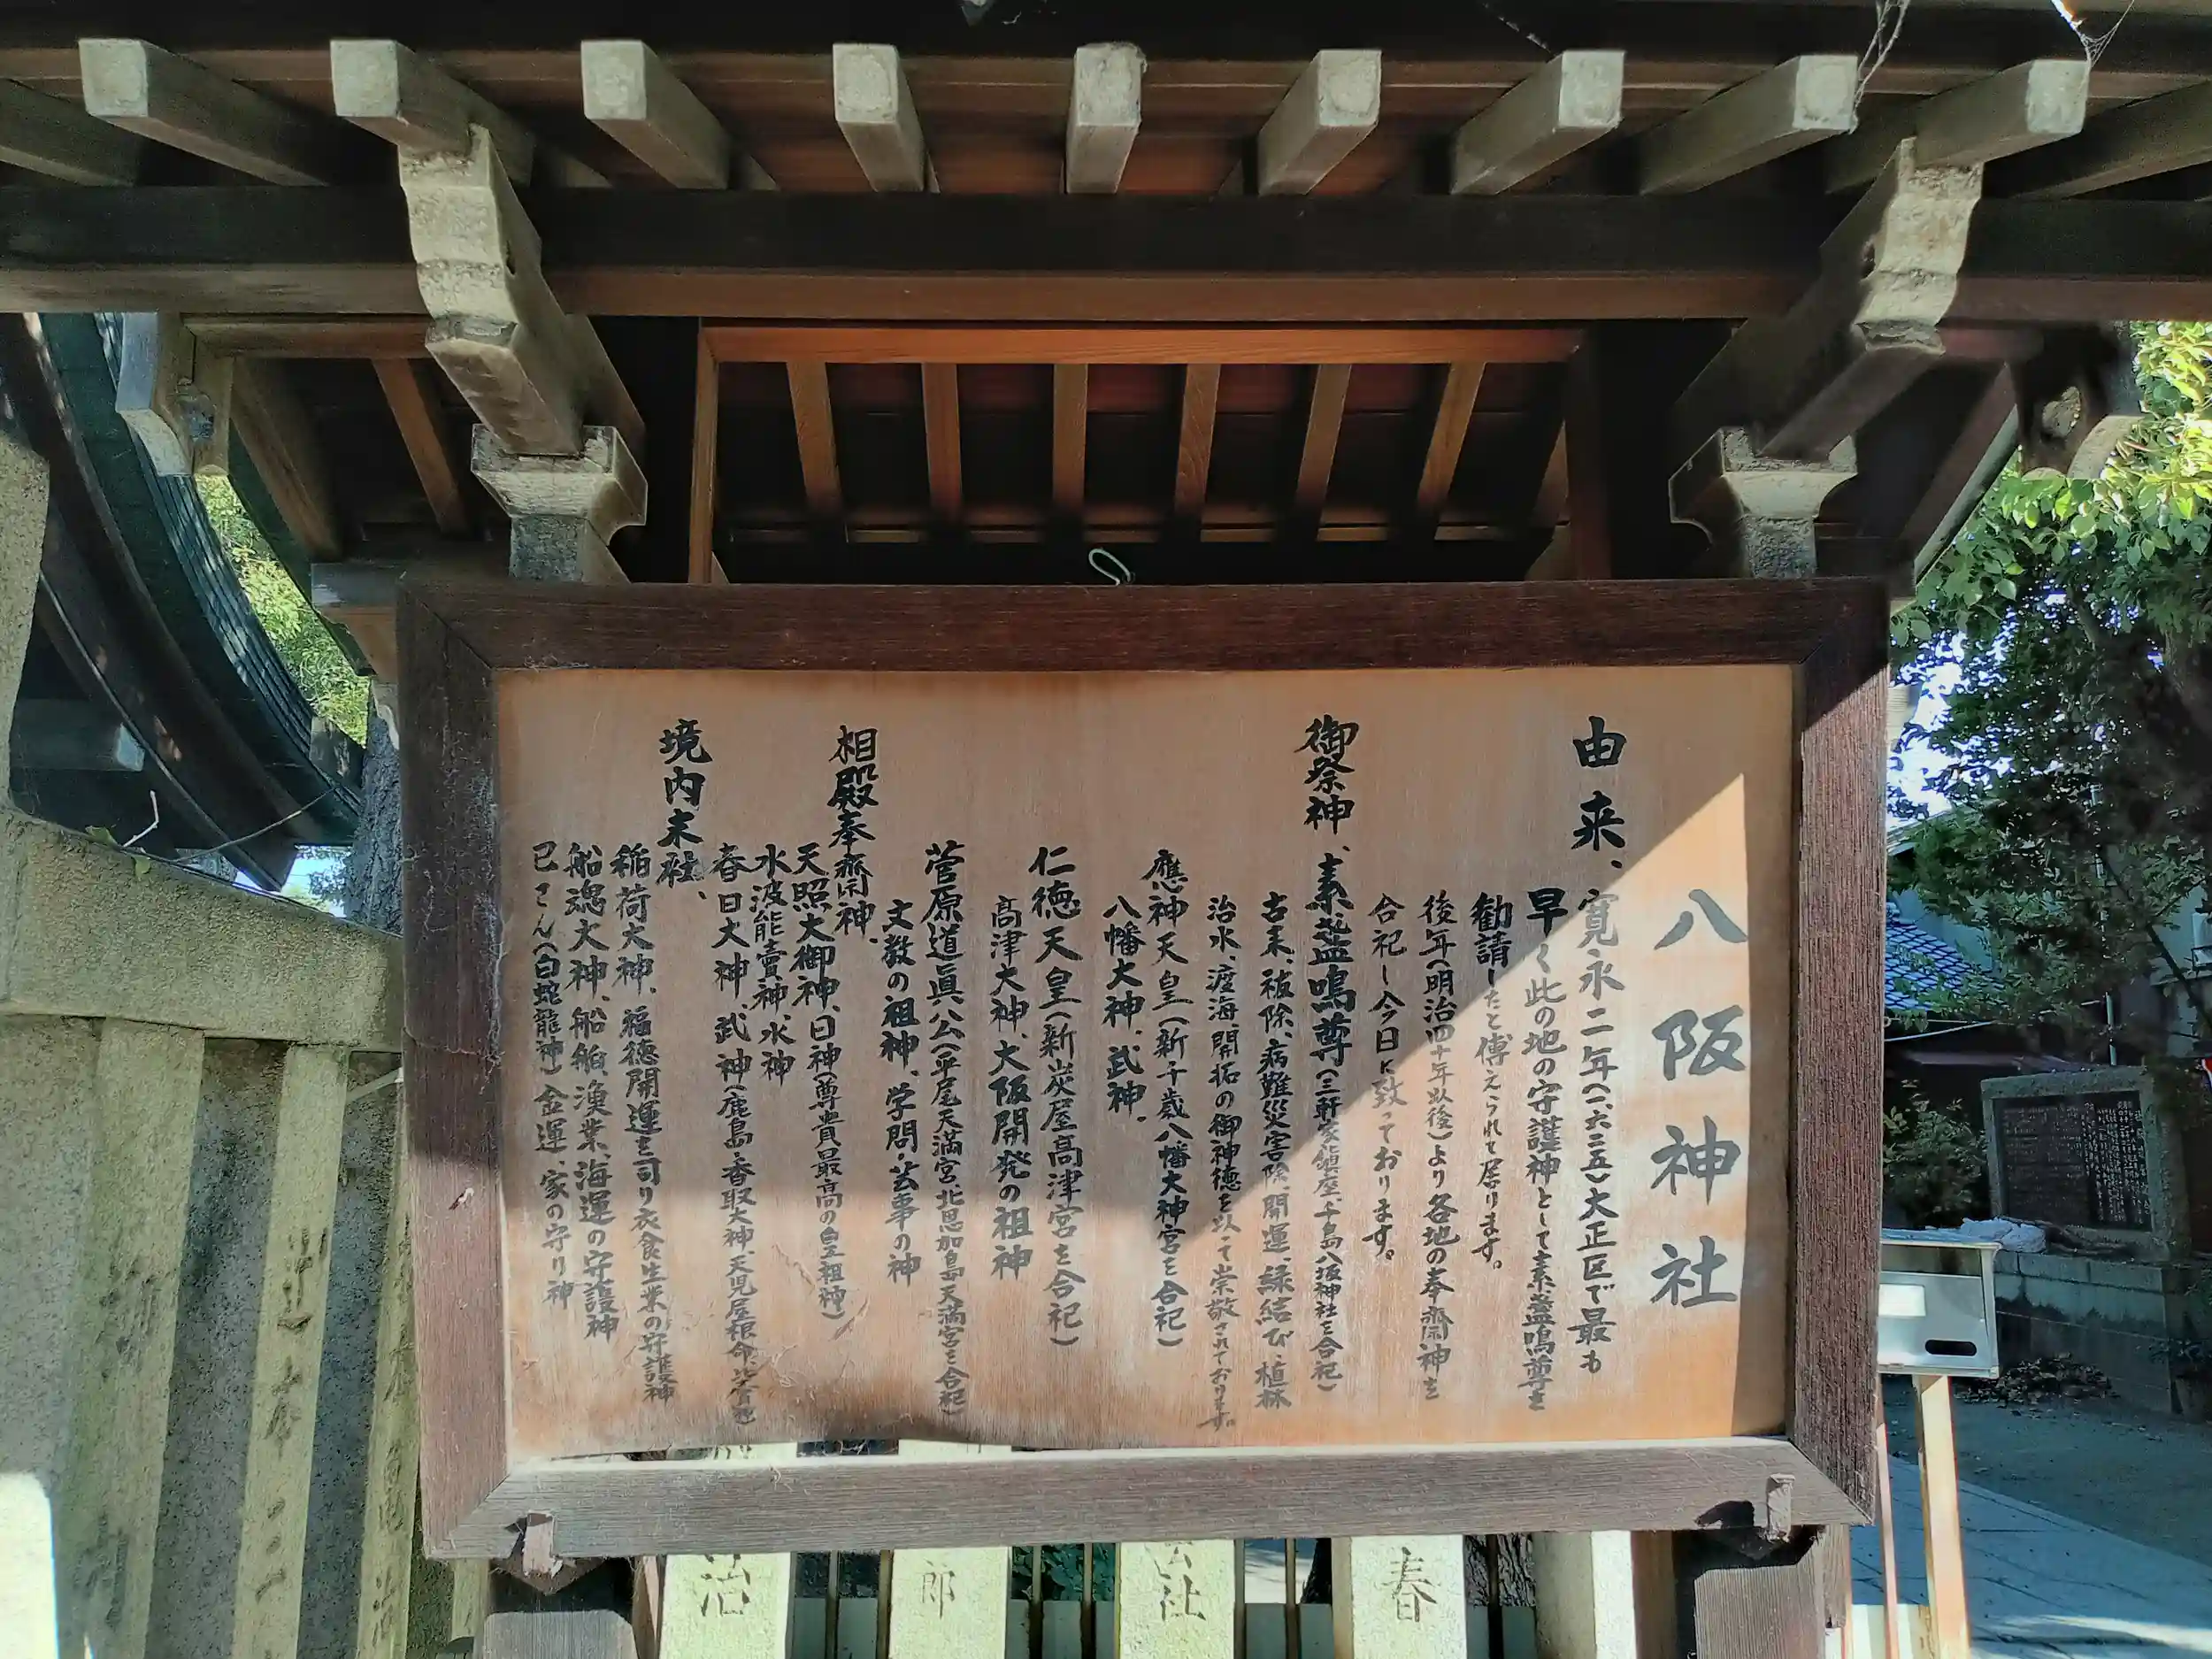 八阪神社
由来、寛永二年(一六三五)大正区で最も
早く此の地の守護神として素盞鳴尊を
勧請したと傳えられて居ります。
後年(明治四十年以後)より各地の奉齋神を
合祀し今日に致っております。
御祭神、素盞鳴尊(三軒家鎮座、千島八坂神社を合祀)
古来、祓除、病難災害除、開運、縁結び、植林
治水、渡海、開拓の御神徳を以て崇敬されております。
應神天皇(新千歳八幡大神宮を合祀)
八幡大神、武神、
仁徳天皇(新炭屋高津宮を合祀)
高津大神、大阪開発の祖神
菅原道眞公(平尾天満宮、北恩加島天満宮を合祀)
文教の祖神、学問・芸事の神
相殿奉齋神、
天照大御神、日神(尊貴最高の皇祖神)
水波能賣神、水神
春日大神、武神(鹿島・香取大神、天児屋根命、比賣神)
境内末社、
稲荷大神、福徳開運を司り衣食生業の守護神
船魂大神、船舶、漁業、海運の守護神
巳さん(白蛇龍神)金運、家の守り神
春
社
郎
治